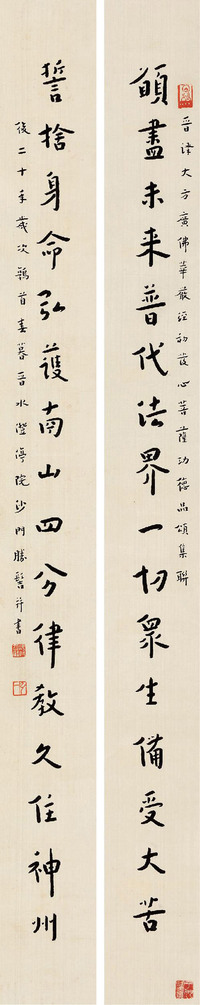 晉譯大方廣佛華嚴經初發心菩薩功德品頌集聯
願盡未来普代法界一切眾生備受大苦
誓捨身命弘護南山四分律教久住神州
後二十年歲次鶉首春暮晉水澄渟院沙門勝髻并書